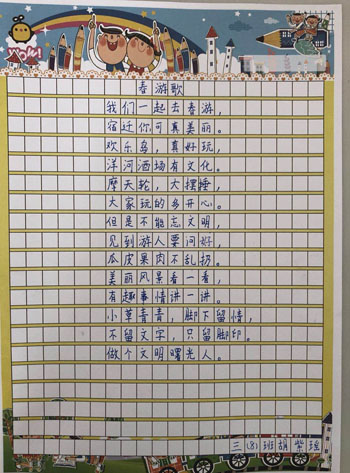 春游歌
我们一起去春游，
宿迁你可真美丽。
欢乐岛，真好玩，
洋河酒场有文化。
摩天轮，大摆锤，
大家玩的多开心。
但是不能忘文明，
见到游人要问好，
瓜皮果肉不乱扔。
美丽风景看一看，
有趣事情讲一讲。
小草青青，脚下留情，
不留文字，只留脚印。
做个文明曙光人。
三（8）班胡紫瑶